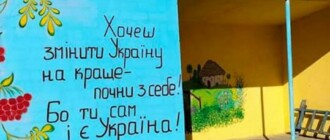 Хочеш
змінити Україну
на краще-
почни з себе!
Бо ти сам
і є Україна!